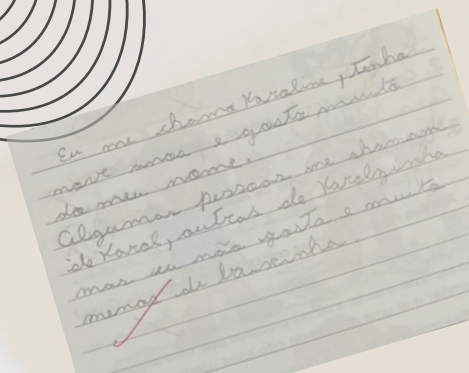 Eu me chamo Karoline, tenho
nove anos e gosto muito
do meu nome.
Algumas pessoas me chamam
de Karol, outras de Karolzinha
mas eu não gosto e muito
menos de baixinha.